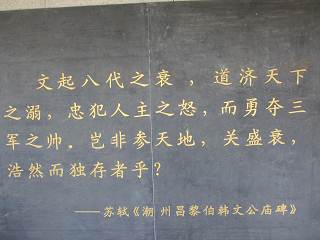 文起八代之衰，道济天下
之溺，忠犯人主之怒，而勇夺三
军之帅。岂非参天地，关盛衰，
浩然而独存者乎？
——苏轼《潮州昌黎伯韩文公庙碑》